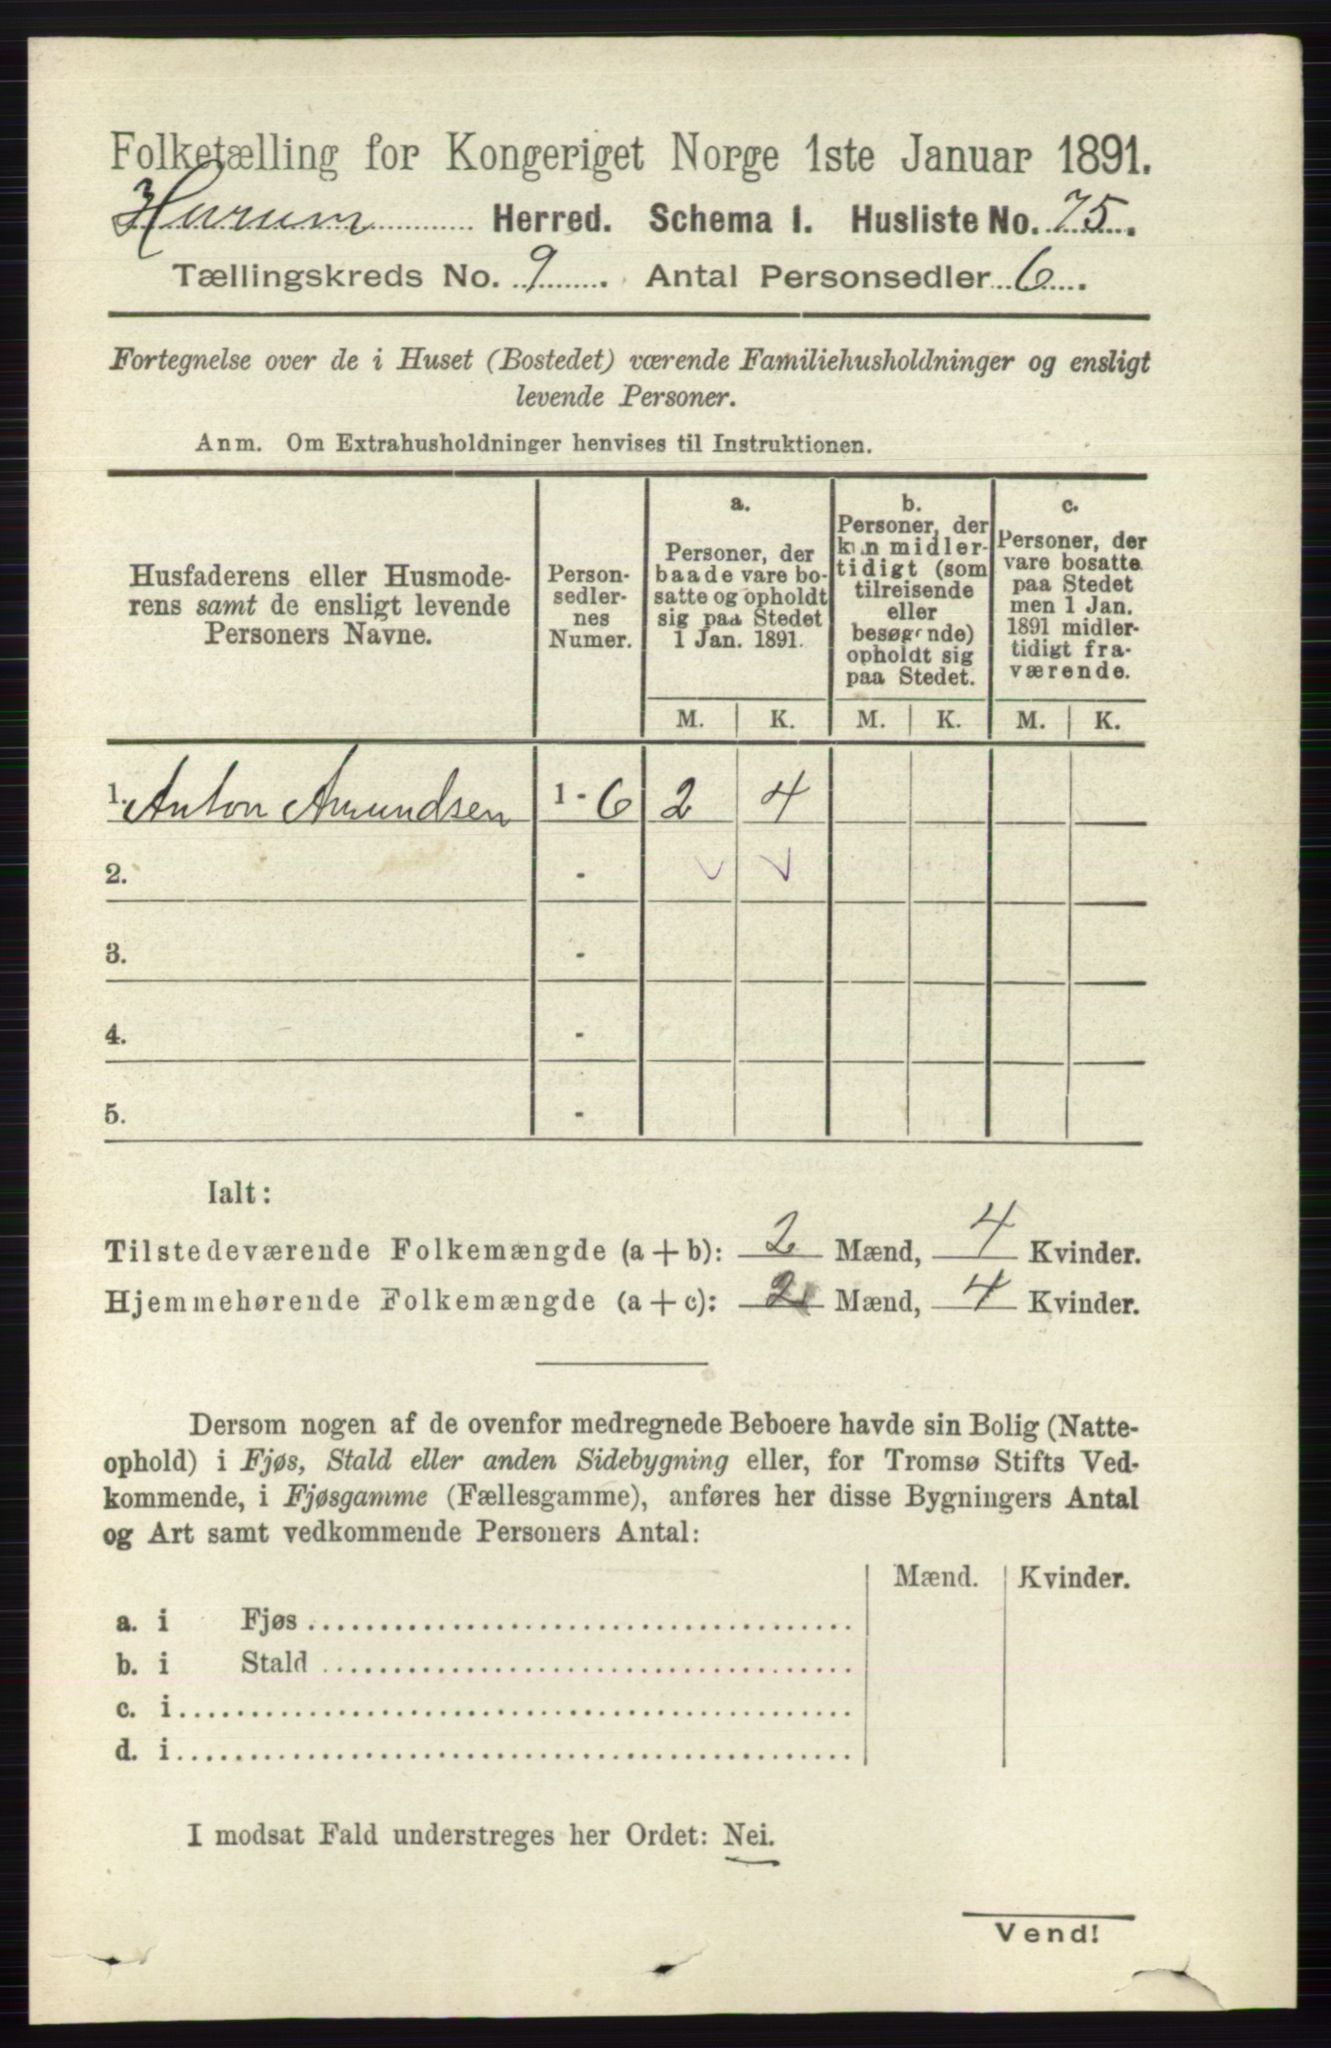 Folketælling for Kongeriget Norge 1ste Januar 1891.
Hurum Herred. Schema I. Husliste No. 75.
Tællingskreds No. 9. Antal Personsedler 6.
Fortegnelse over de i Huset (Bostedet) værende Familiehusholdninger og ensligt
levende Personer.
Anm. Om Extrahusholdninger henvises til Instruktionen.
Husfaderens eller Husmode-
rens samt de ensligt levende
Personers Navne.
Person-
sedler-
nes
Numer.
a.
Personer, der
baade vare bo-
satte og opholdt
sig paa Stedet
1 Jan. 1891.
b.
Personer, der
kun midler-
tidigt (som
tilreisende
eller
besøgende)
opholdt sig
paa Stedet.
c.
Personer, der
vare bosatte
paa Stedet
men 1 Jan.
1891 midler-
tidigt fra-
værende.
M. K. M. K. M. K.
1. Anton Amundsen 1 - 6 2 4
2. -
3. -
4. -
5. -
Ialt:
Tilstedeværende Folkemængde (a + b): 2 Mænd, 4 Kvinder.
Hjemmehørende Folkemængde (a + c): 2 Mænd, 4 Kvinder.
Dersom nogen af de ovenfor medregnede Beboere havde sin Bolig (Natte-
ophold) i Fjøs, Stald eller anden Sidebygning eller, for Tromsø Stifts Ved-
kommende, i Fjøsgamme (Fællesgamme), anføres her disse Bygningers Antal
og Art samt vedkommende Personers Antal:
Mænd. Kvinder.
a. i Fjøs
b. i Stald
c. i
d. i
I modsat Fald understreges her Ordet: Nei.
Vend!